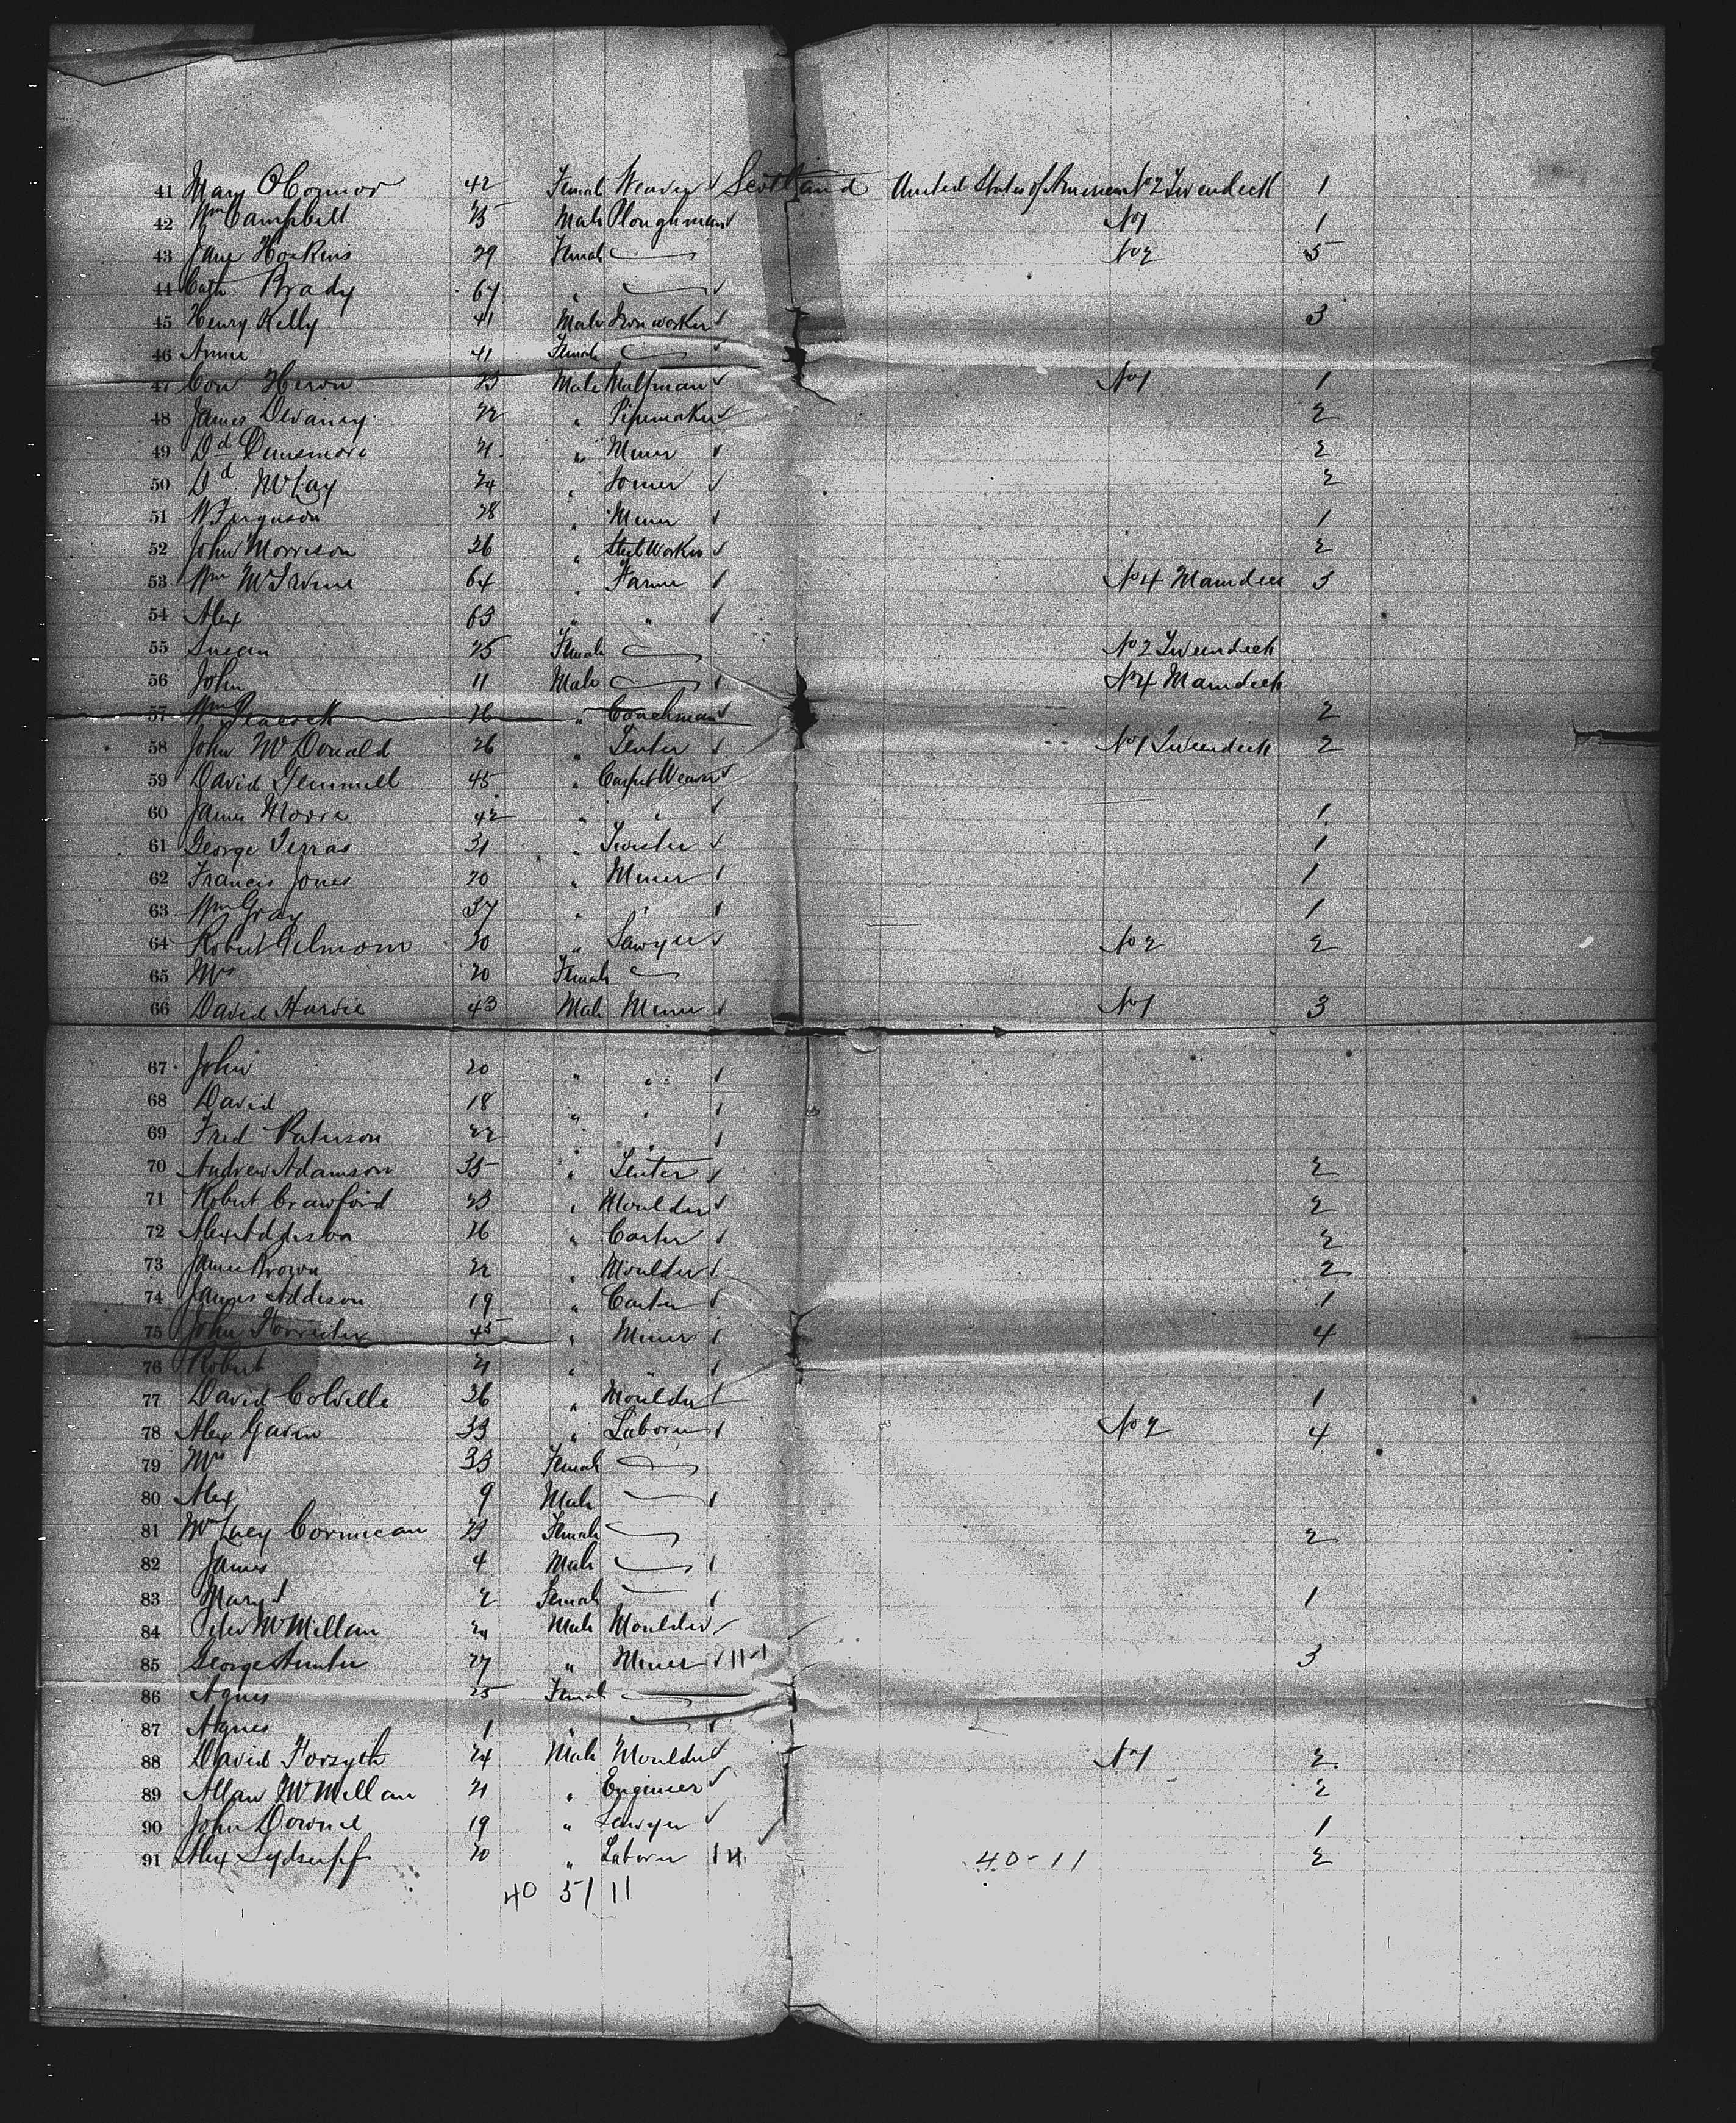 41 Mary O'Connor 42 Female Weaver Scotland United States of America No 2 Tweendeck 1
42 Wm Campbell 25 Male Ploughman No 1 1
43 Jane Hoskins 29 Female No 2 5
44 Cath Brady 67 "
45 Henry Kelly 41 Male Iron worker 3
46 Annie 41 Female
47 Heron 23 Male Maltman No 1 1
48 James Devaney 22 " Pipemaker 2
49 Dd Dunsmore 21 " Miner 2
50 Dd McLay 24 " 2
51 W Ferguson 28 " Miner 1
52 John Morrison 26 " Steel Worker 2
53 Wm McIrvine 64 " Farmer No 4 Maindeck 3
54 Alex 63 " "
55 Susan 25 Female No 2 Tweendeck
56 John 11 Male No 4 Maindeck
57 Wm 26 " Coachman 2
58 John McDonald 26 " Tenter No 1 Tweendeck 2
59 David Gemmell 45 " Carpet Weaver
60 James Moore 42 " " 1
61 George Terras 31 " Twister 1
62 Francis Jones 20 " Miner 1
63 Wm Gray 37 " " 1
64 Robert 20 " Sawyer No 2 2
65 Mrs 20 Female
66 David Harvie 43 Male Miner No 1 3
67 John 20 " "
68 David 18 " "
69 Fred Paterson 22 " "
70 Andrew Adamson 35 " Tenter 2
71 Robert Crawford 23 " Moulder 2
72 Alex Addison 26 " Carter 2
73 James Brown 22 " Moulder 2
74 James Addison 19 " Carter 1
75 John Forrester 45 " Miner 4
76 Robert 21 " "
77 David Colville 36 " Moulder 1
78 Alex Gavin 33 " Laborer No 2 4
79 Mrs 33 Female
80 Alex 9 Male
81 Cormican 23 Female 2
82 James 4 Male
83 Mary 2 Female 1
84 Peter McMillan Male Moulder
85 George Hunter 27 " Miner 11-1 3
86 Agnes 25 Female
87 Agnes 1 "
88 David Forsyth 24 Male Moulder No 1 2
89 Allan McMillan 21 " Engineer 2
90 John Downie 19 " Sawyer 1
91 Alex Lydserff 20 " Laborer 40-11 2
40 51 11